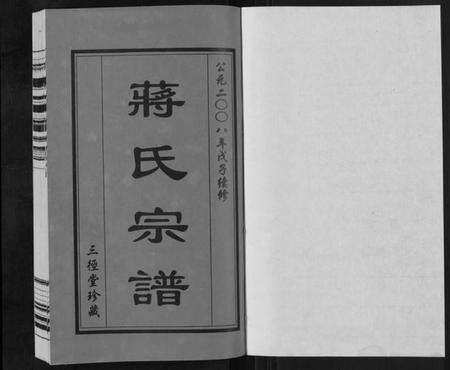 公元二〇〇八年戊子续修
蔣氏宗譜
三徑堂珍藏